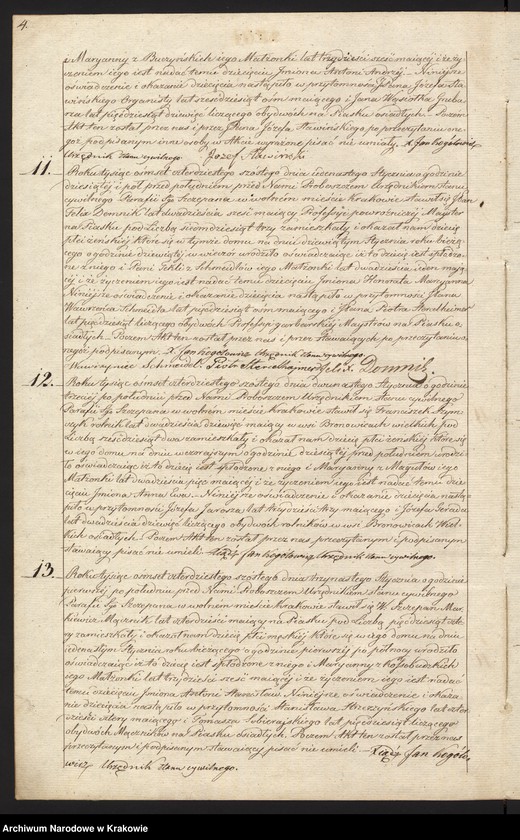 4.
i Maryanny z Buczyńskich iego Małżonki lat trzydzieści sześć maiącey i że ży=
czeniem iego iest nadać temu dziecięciu Jmiona Antoni Andrzej. Niniejsze
oświadczenie i okazanie dziecięcia nastąpiło w przytomności Jana Józefa Sła=
wińskiego Organisty lat sześćdziesiąt ośm maiącego i Jana Wąsika Graba=
rza lat pięćdziesiąt dziewięć liczącego obydwóch na Piasku osiadłych. Poczem
Akt ten został przez nas i przez Jana Józefa Sławińskiego po przeczytaniu one=
goż podpisanym inne osoby w Akcie wyrażone pisać nie umiały. X Jan
Urzędnik Stanu cywilnego. Józef Sławiński
11. Roku tysiąc ośmset czterdziestego szóstego dnia iedenastego Stycznia o godzinie
dziesiątej i pół przed południem przed Nami Proboszczem Urzędnikiem Stanu
cywilnego Parafii Sgo Szczepana w wolnem mieście Krakowie stawił się Jan
Felix Domnik lat dwadzieścia sześć maiący Professyi powroźniczej Majster
na Piasku pod Liczbą siedmdziesiąt trzy zamieszkały i okazał nam dziecię
płci żeńskiej które się w tymże domu na dniu dziewiątym Stycznia roku bieżą=
cego o godzinie dziewiątej w wieczór urodziło oświadczaiąc iż to dziecię iest spłodzo=
ne z niego i Pani Tekli z Schmeidlów iego Małżonki lat dwadzieścia ieden maią=
cej i że życzeniem iego iest nadać temu dziecięciu Jmiona Honorata Maryanna
Niniejsze oświadczenie i okazanie dziecięcia nastąpiło w przytomności Jana
Wawrzeńca Schmeidla lat pięćdziesiąt ośm maiącego i Jana Piotra
lat pięćdziesiąt liczącego obydwóch Professyi garbarskiej Majstrów na Piasku o=
siadłych. Poczem Akt ten został przez nas i przez Stawaiących po przeczytaniu o=
negoż podpisanym. X Jan Urzędnik Stanu cywilnego.
Wawrzyniec Schmeidel Piotr Felix Domnik.
12. Roku tysiąc ośmset czterdziestego szóstego dnia dwunastego Stycznia o godzinie
trzeciej po południu przed Nami Proboszczem Urzędnikiem Stanu cywilnego
Parafii Sgo Szczepana w wolnem mieście Krakowie stawił się Franciszek Szym=
czyk rolnik lat dwadzieścia dziewięć maiący w wsi Bronowicach wielkich pod
Liczbą sześćdziesiąt dwa zamieszkały i okazał nam dziecię płci żeńskiej które się
w iego domu na dniu wczorajszym o godzinie dziesiątej przed południem urodzi=
ło oświadczaiąc iż to dziecię iest spłodzone z niego i Maryanny z Magutów iego
Małżonki lat dwadzieścia pięć maiącej i że życzeniem iego iest nadać temu dzie=
cięciu Jmiona Anna Ewa. Niniejsze oświadczenie i okazanie dziecięcia nastą=
piło w przytomności Józefa Jarosza lat trzydzieści trzy maiącego i Józefa
lat dwadzieścia dziewięć liczącego obydwóch rolników w wsi Bronowicach Wiel=
kich osiadłych. Poczem Akt ten został przez nas przeczytanym i podpisanym
stawaiący pisać nie umieli. Xiądz Jan Urzędnik Stanu cywilnego.
13. Roku tysiąc ośmset czterdziestego szóstego dnia trzynastego Stycznia o godzinie
pierwszej po południu przed Nami Proboszczem Urzędnikiem Stanu cywilnego
Parafii Sgo Szczepana w wolnem mieście Krakowie stawił się W. Szczepan Mar=
kiewicz Mącznik lat czterdzieści maiący na Piasku pod Liczbą pięćdziesiąt czte=
ry zamieszkały i okazał nam dziecię płci męzkiej które się w iego domu na dniu
iedenastym Stycznia roku bieżącego o godzinie pierwszej po północy urodziło
oświadczaiąc iż to dziecię iest spłodzone z niego i Maryanny z
iego Małżonki lat trzydzieści sześć maiącej i że życzeniem iego iest nadać
temu dziecięciu Jmiona Antoni Stanisław. Niniejsze oświadczenie i okaza=
nie dziecięcia nastąpiło w przytomności Stanisława Skrzyńskiego lat czter=
dzieści cztery maiącego i Tomasza Sobierajskiego lat pięćdziesiąt liczącego
obydwóch Mączników na Piasku osiadłych. Poczem Akt ten został przez nas
przeczytanym i podpisanym stawaiący pisać nie umieli. Xiądz Jan
Urzędnik Stanu cywilnego.
Archiwum Narodowe w Krakowie